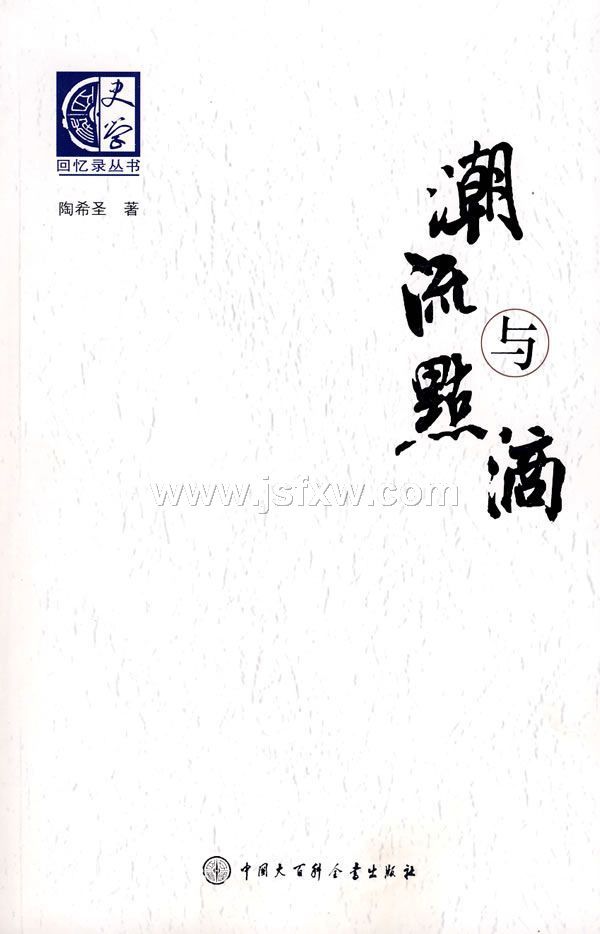 史学
回忆录丛书
陶希圣 著
潮流
与
點滴
www.jsfxw.com
中国大百科全书出版社